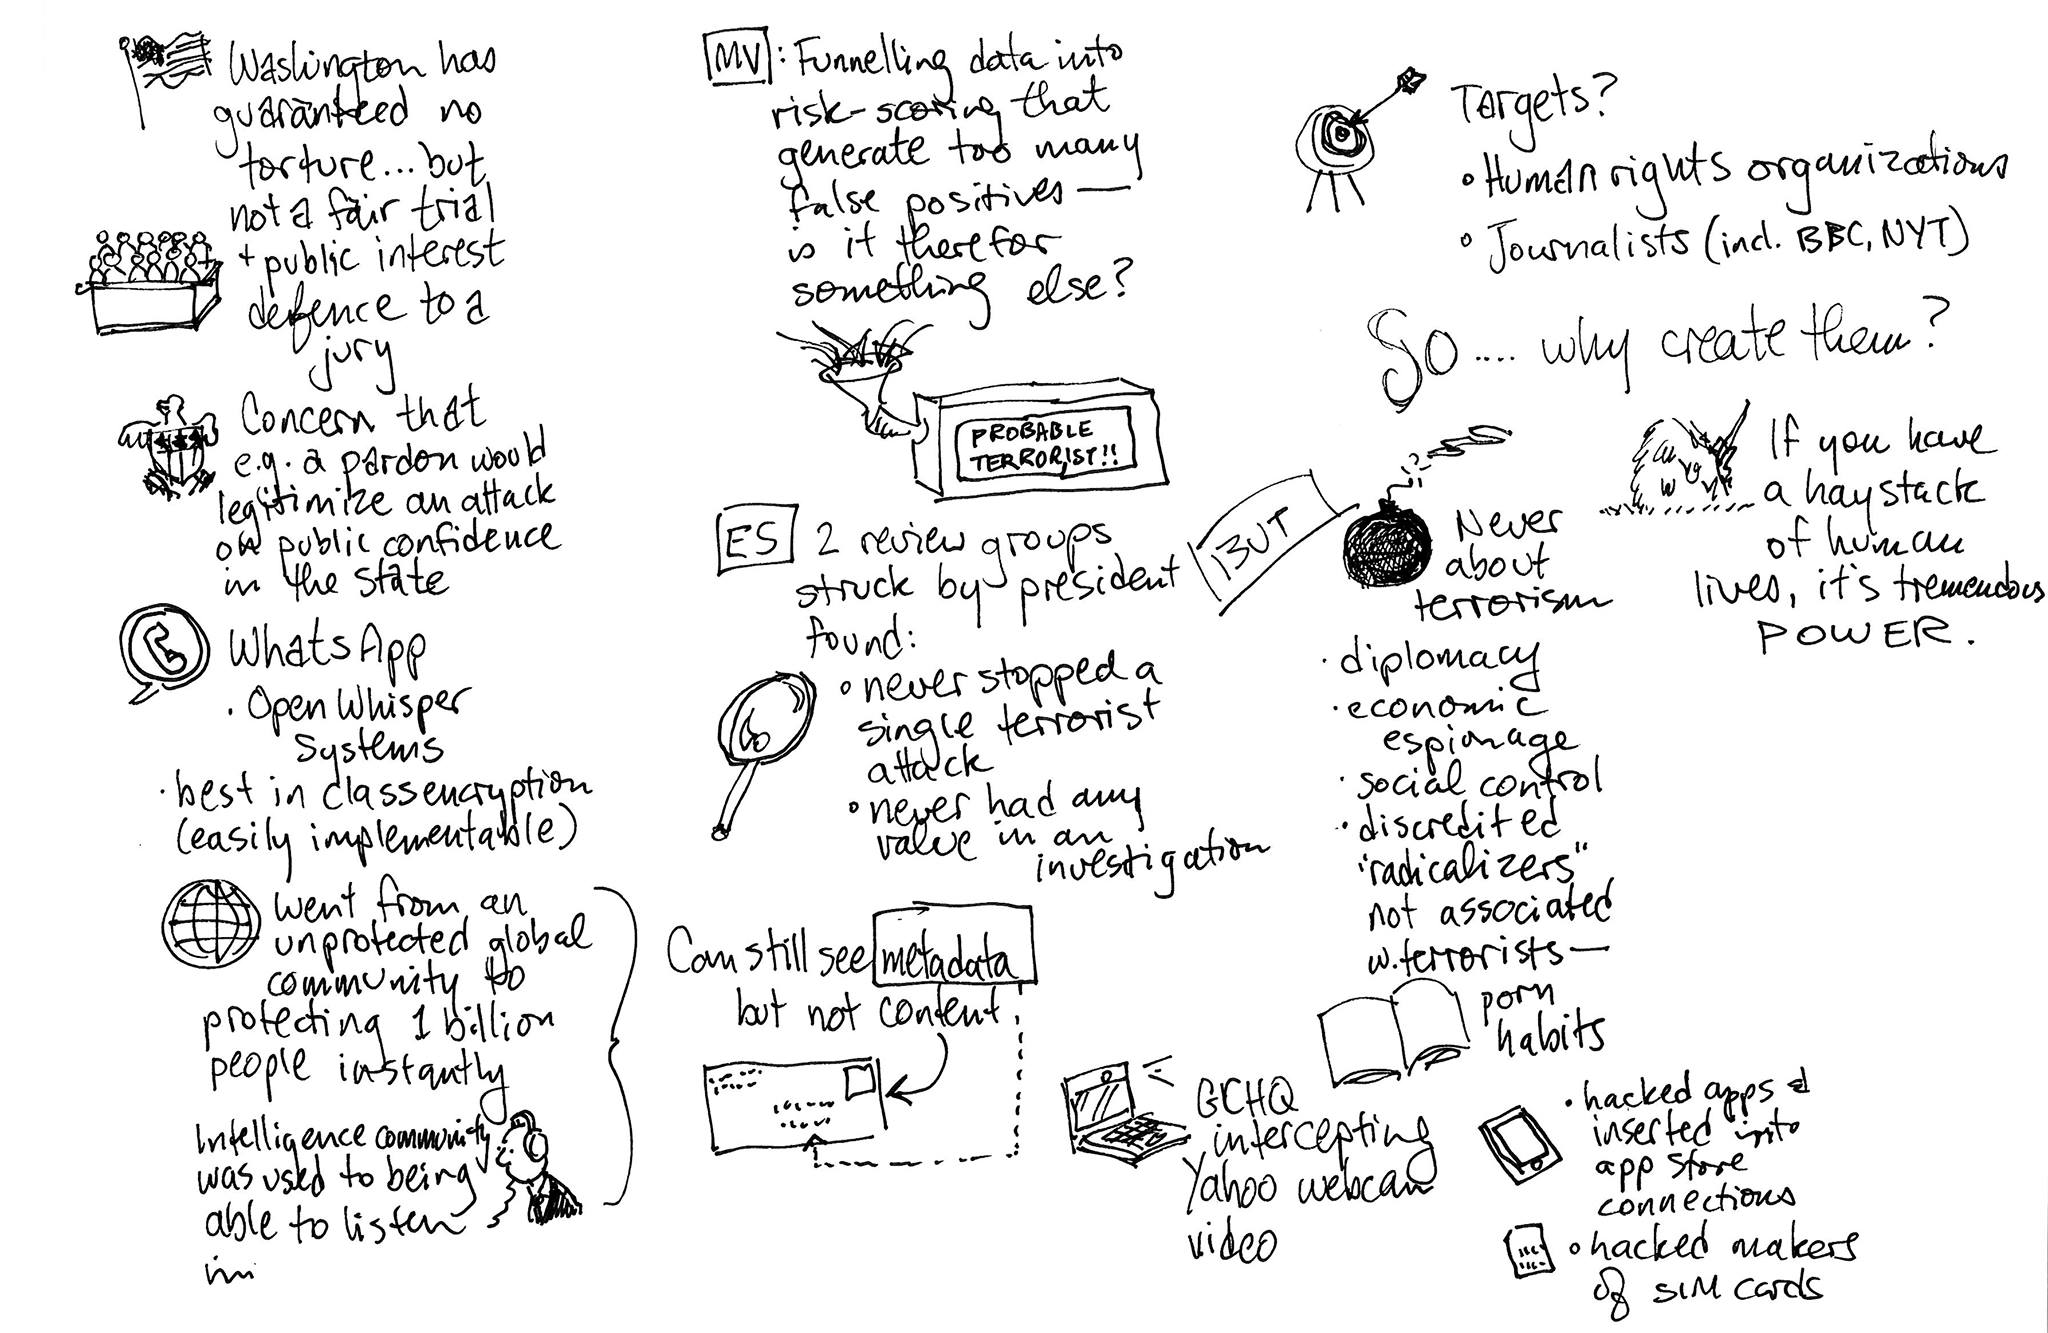 Washington has
guaranteed no
torture... but
not a fair trial
+ public interest
defence to a
jury
Concern that
e.g. a pardon would
legitimize an attack
on public confidence
in the state
WhatsApp
· Open Whisper
Systems
· best in class encryption
(easily implementable)
Went from an
unprotected global
community to
protecting 1 billion
people instantly
Intelligence community
was used to being
able to listen
in
MV: Funnelling data into
risk-scoring that
generate too many
false positives —
is it therefor
something else?
PROBABLE
TERRORIST!!
ES 2 review groups
struck by president
found:
• never stopped a
single terrorist
attack
• never had any
value in an
investigation
Can still see metadata
but not content
Targets?
• Human rights organizations
• Journalists (incl. BBC, NYT)
So .... why create them?
BUT
Never
about
terrorism
· diplomacy
· economic
espionage
· social control
· discredited
"radicalizers"
not associated
w. terrorists —
porn
habits
If you have
a haystack
of human
lives, it's tremendous
POWER.
GCHQ
intercepting
Yahoo webcam
video
• hacked apps &
inserted into
app store
connections
• hacked makers
of SIM cards